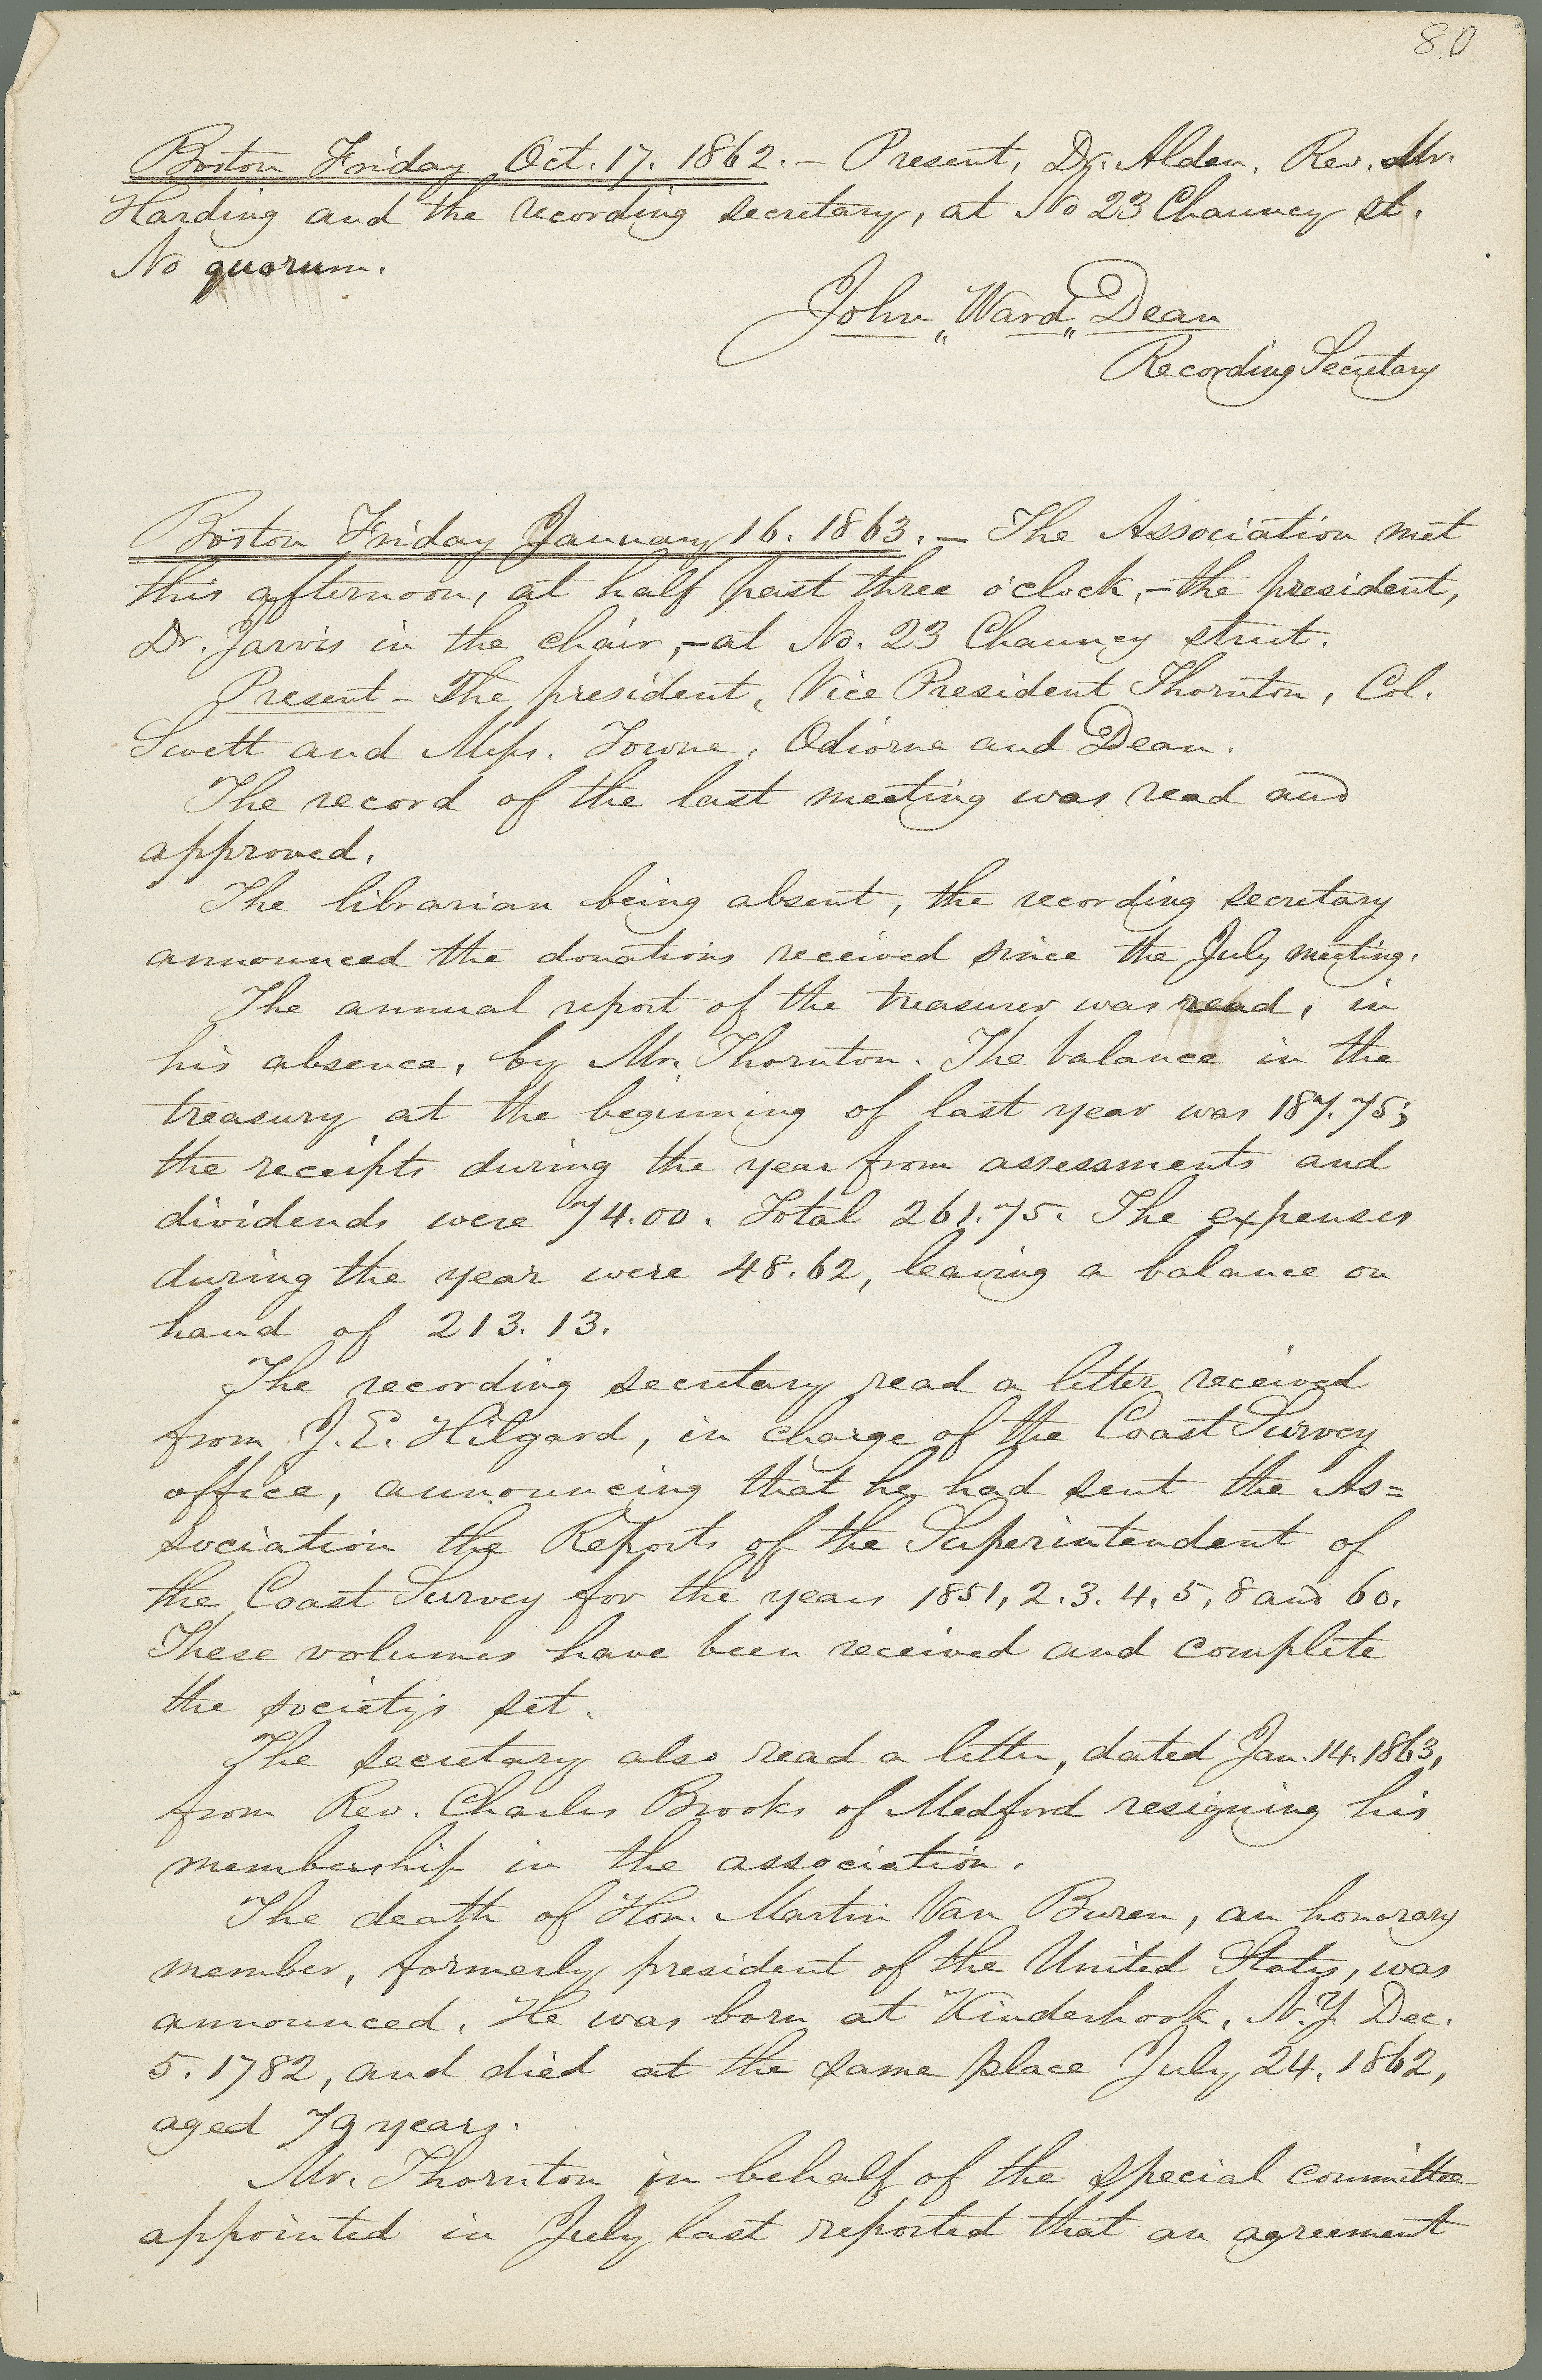 80
Boston Friday Oct. 17. 1862. – Present, Dr. Alden, Rev. Mr.
Harding and the recording secretary, at No 23 Chauncy st.
No quorum.
John „Ward„ Dean
Recording Secretary
Boston Friday January 16. 1863. – The Association met
this afternoon, at half past three o'clock, – the president,
Dr. Jarvis in the chair, – at No. 23 Chauncy street.
Present – The president, Vice President Thornton, Col.
Swett and Messrs. Towne, Odiorne and Dean.
The record of the last meeting was read and
approved.
The librarian being absent, the recording secretary
announced the donations received since the July meeting.
The annual report of the treasurer was read, in
his absence, by Mr. Thornton. The balance in the
treasury at the beginning of last year was 187.75;
the receipts during the year from assessments and
dividends were 74.00. Total 261.75. The expenses
during the year were 48.62, leaving a balance on
hand of 213.13.
The recording secretary read a letter received
from J. E. Hilgard, in charge of the Coast Survey
office, announcing that he had sent the As=
sociation the Reports of the Superintendent of
the Coast Survey for the years 1851, 2. 3. 4, 5, 8 and 60.
These volumes have been received and complete
the society's set.
The secretary also read a letter, dated Jan. 14. 1863,
from Rev. Charles Brooks of Medford resigning his
membership in the association.
The death of Hon. Martin Van Buren, an honorary
member, formerly president of the United States, was
announced. He was born at Kinderhook, N.Y. Dec.
5. 1782, and died at the same place July 24, 1862,
aged 79 years.
Mr. Thornton in behalf of the special committee
appointed in July last reported that an agreement